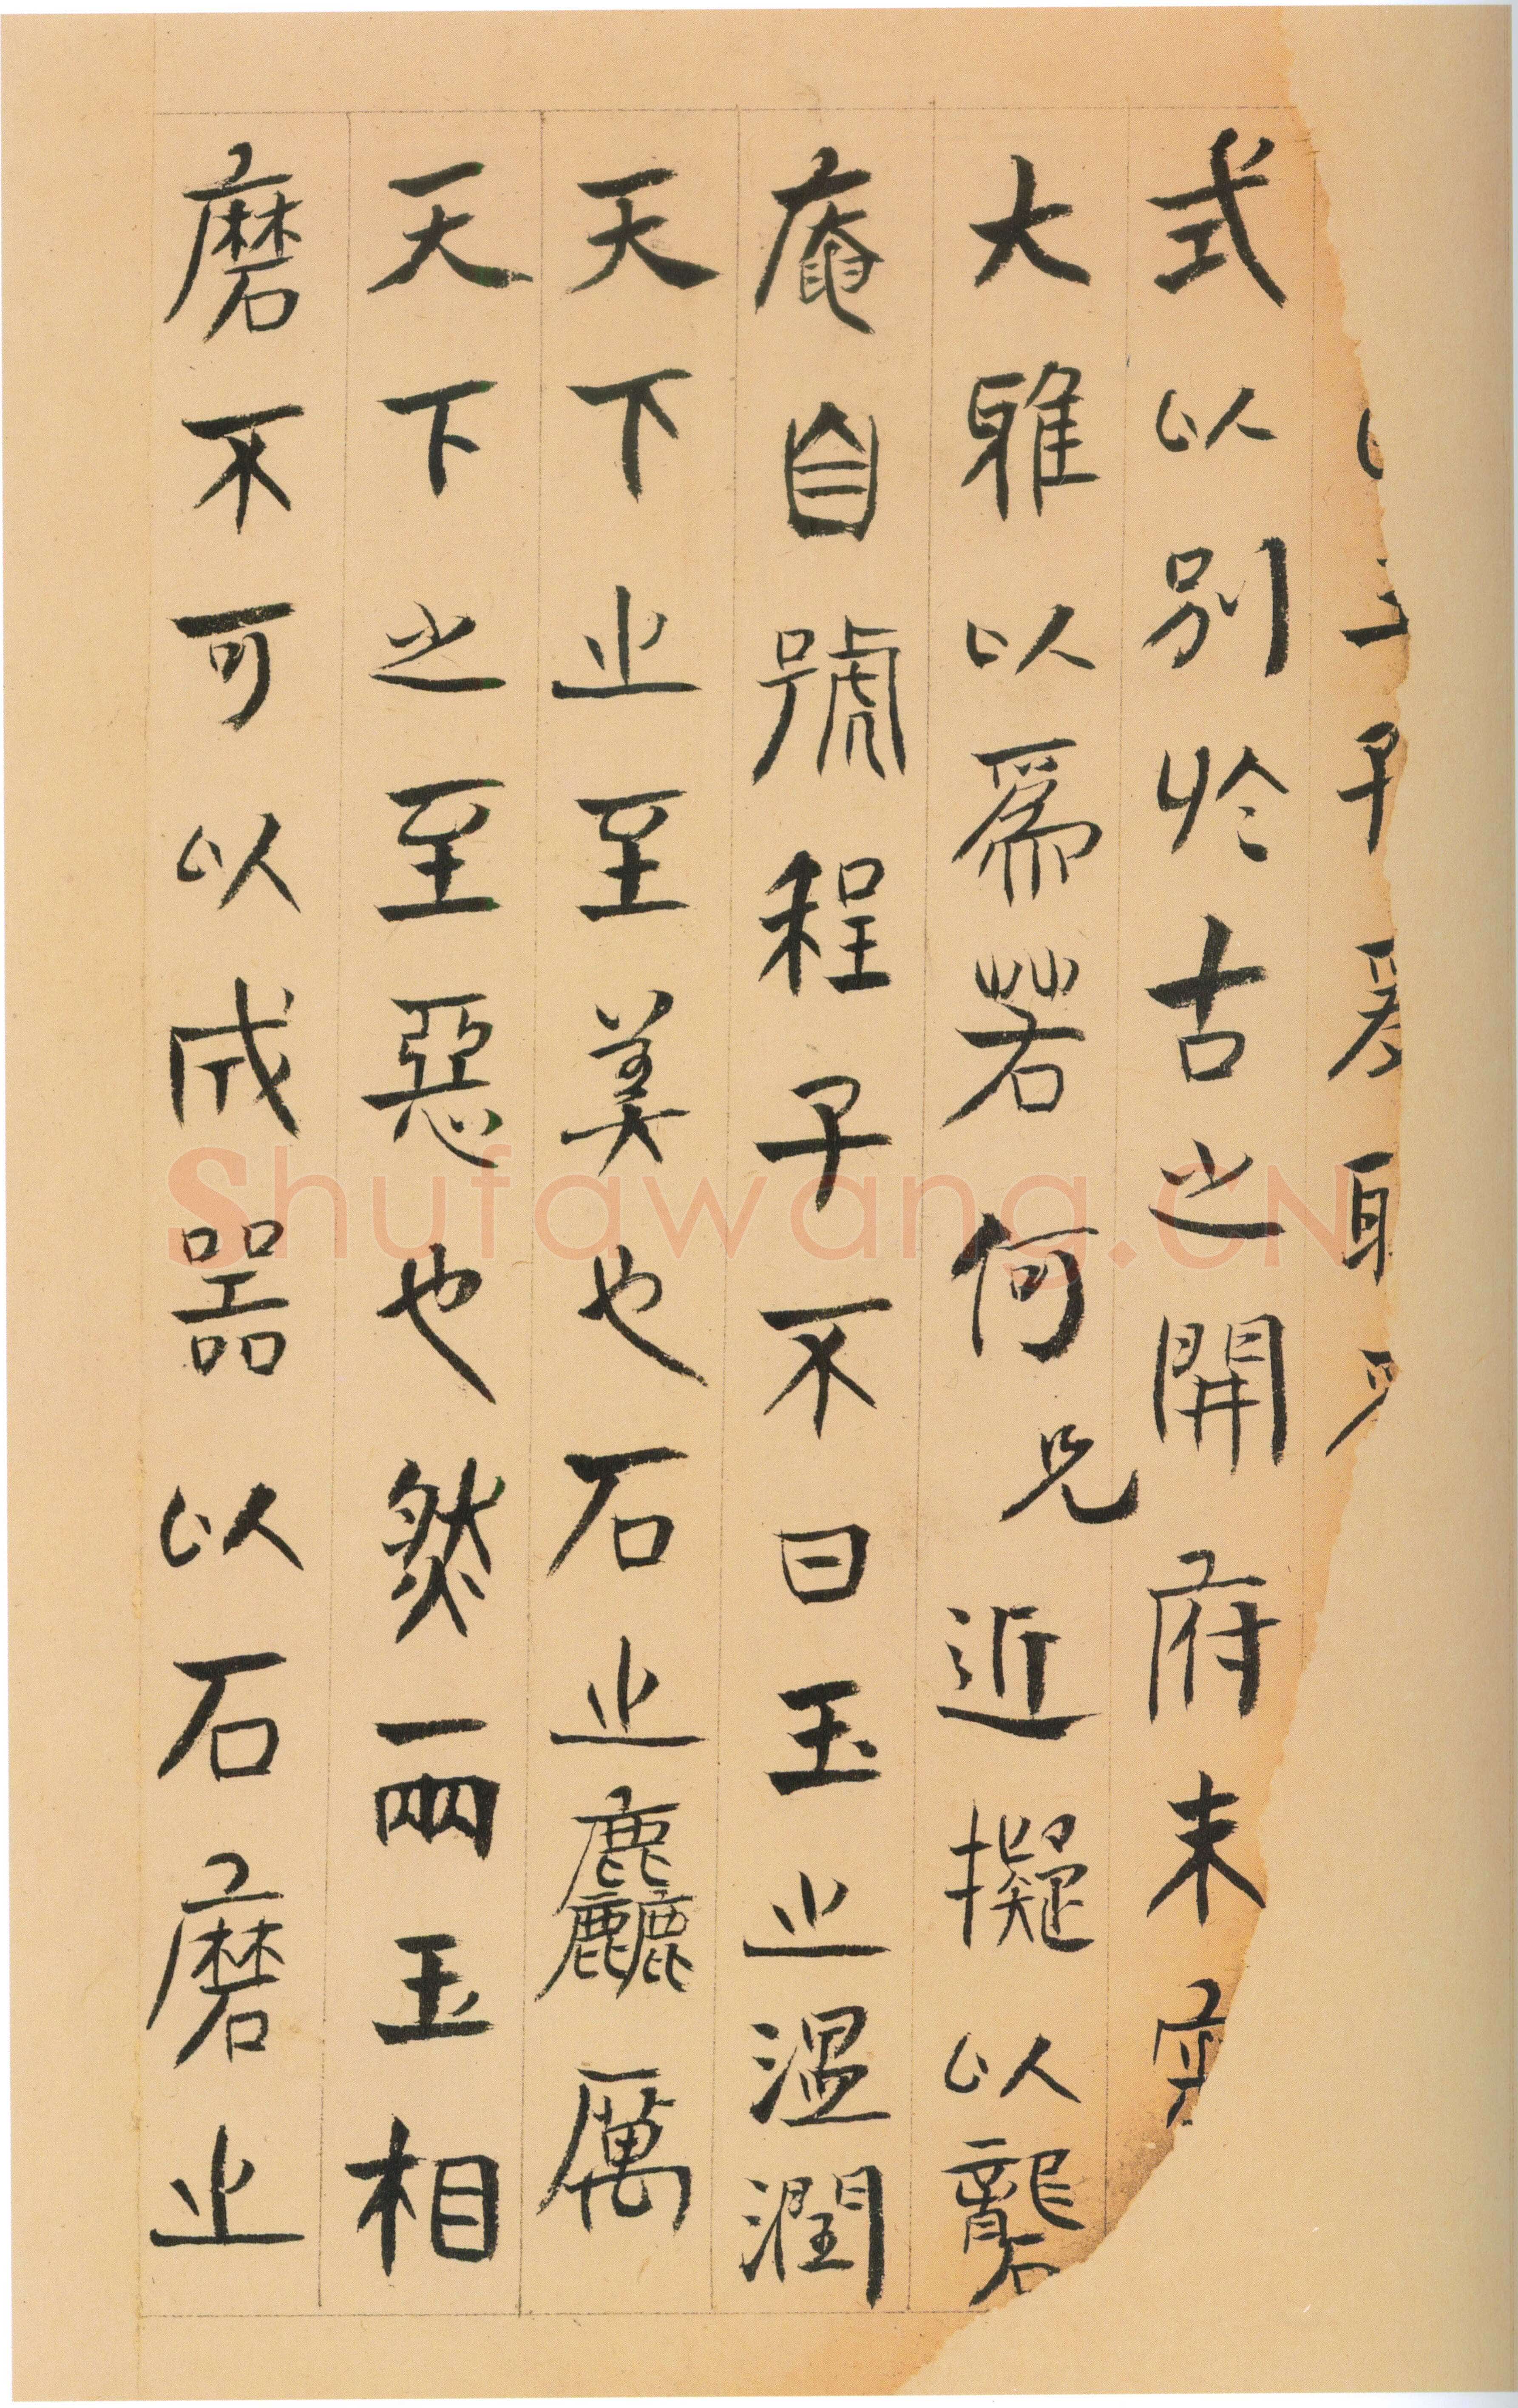 式以別於古之開府未
大雅以爲若何兄近擬以礱
庵自號程子不曰玉之溫潤
天下之至美也石之麤厲
天下之至惡也然兩玉相
磨不可以成器以石磨之
Shufawang.CN